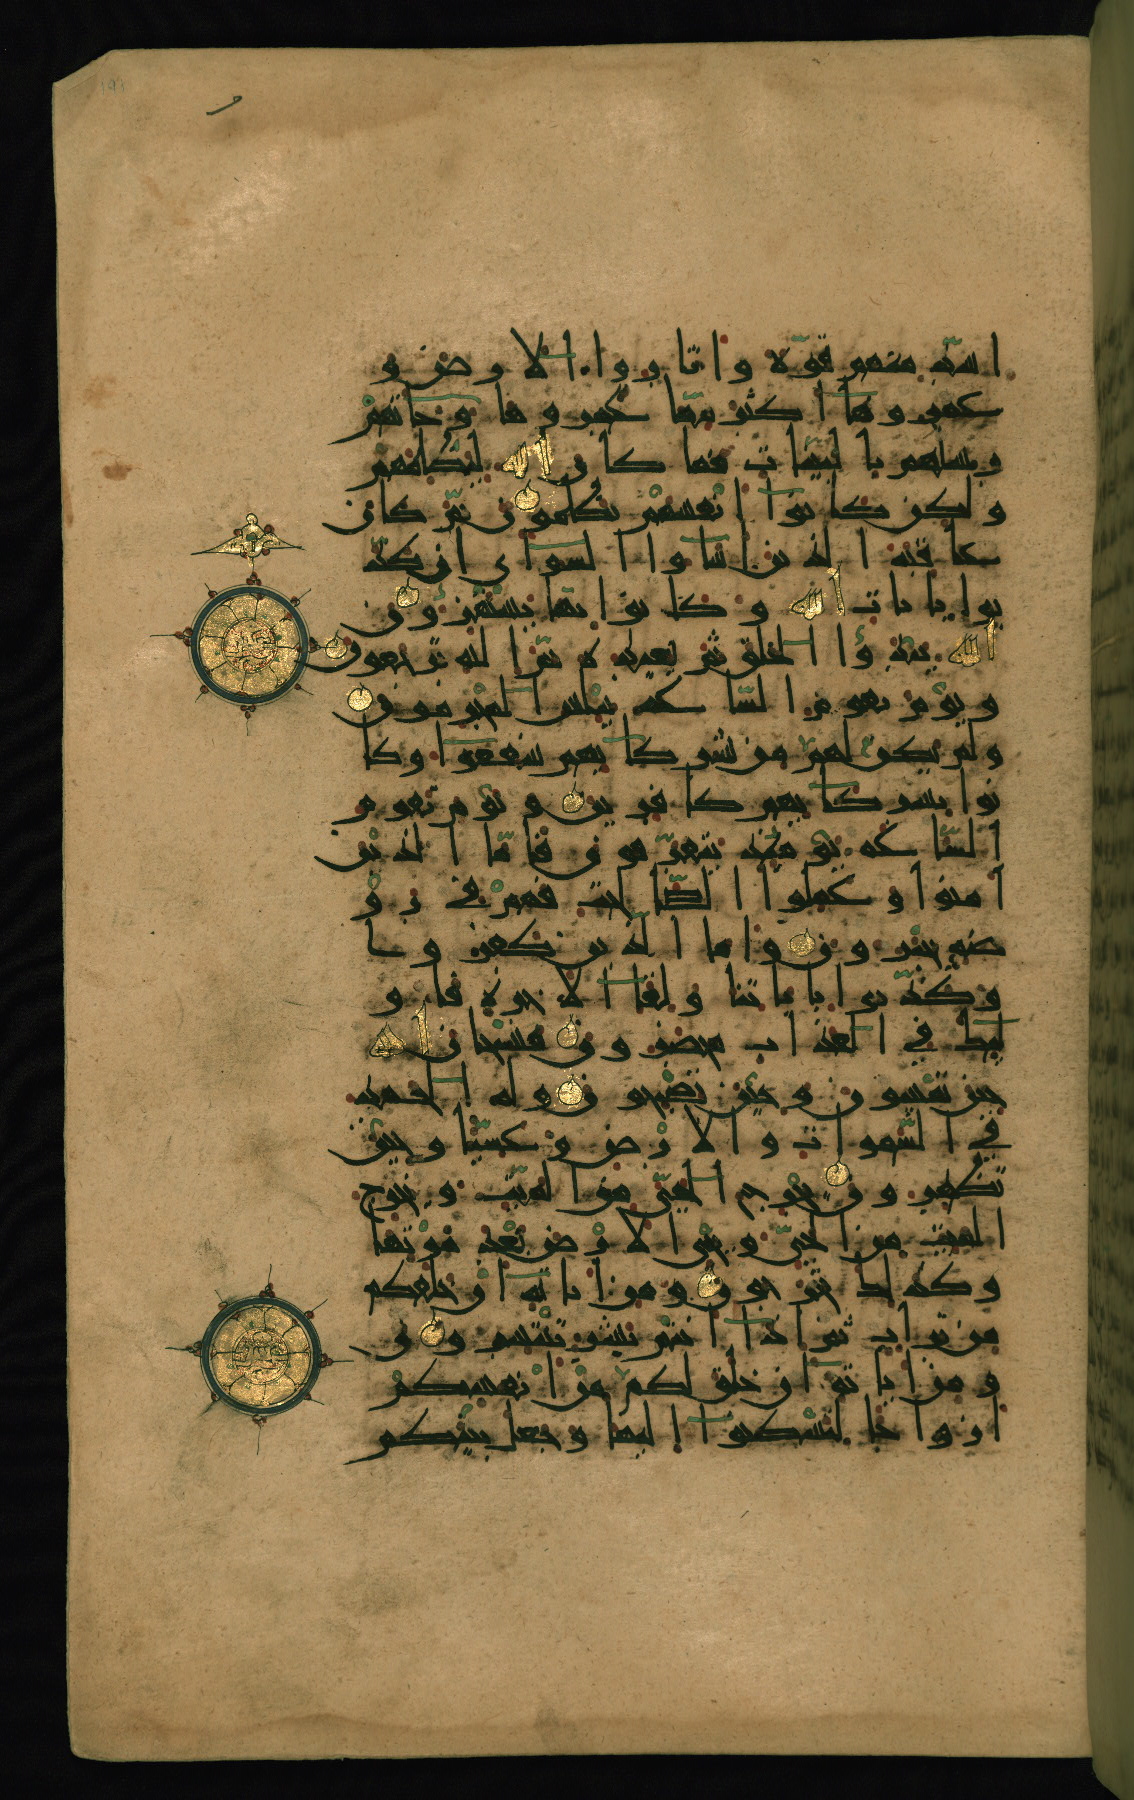 اشد منهم قوة واثاروا الارض و
عمروها اكثر مما عمروها وجاتهم
رسلهم بالبينات فما كان الله ليظلمهم
ولكن كانوا انفسهم يظلمون ثم كان
عاقبة الذين اساوا السواى ان كذ
بوا بايات الله وكانوا بها يستهزون
الله يبدوا الخلق ثم يعيده ثم اليه ترجعون
ويوم تقوم الساعة يبلس المجرمون
ولم يكن لهم من شركايهم شفعوا وكا
نوا بشركايهم كافرين ويوم تقوم
الساعة يوميذ يتفرقون فاما الذين
امنوا وعملوا الصالحات فهم في رو
ضة يحبرون واما الذين كفروا
وكذبوا باياتنا ولقا الاخرة فاو
ليك في العذاب محضرون فسبحان الله
حين تمسون وحين تصبحون وله الحمد
في السموات والارض وعشيا وحين
تظهرون يخرج الحي من الميت ويخرج
الميت من الحي ويحي الارض بعد موتها
وكذلك تخرجون ومن اياته ان خلقكم
من تراب ثم اذا انتم بشر تنتشرون
ومن اياته ان خلق لكم من انفسكم
ازواجا لتسكنوا اليها وجعل بينكم